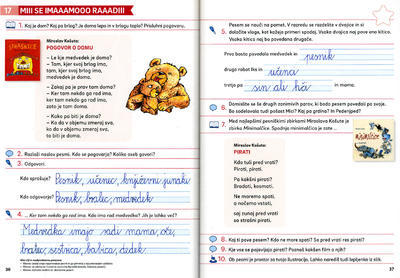 17 MIII SE IMAAAMOOO RAAADIII
1. Kaj je dom? Kaj pa blog? Je doma lepo in v blogu toplo? Prisluhni pogovoru.
Miroslav Košuta:
POGOVOR O DOMU
– Le kje medvedek je doma?
– Tam, kjer svoj brlog ima,
tam, kjer svoj brlog ima,
medvedek je doma.
– Zakaj pa je prav tam doma?
– Ker tam nekdo ga rad ima,
ker tam nekdo ga rad ima,
je tam doma.
– Kako pa biti je doma?
– Ko da v objemu zmeraj si,
ko da v objemu zmeraj si,
ta biti je doma.
2. Razloži naslov pesmi. Kdo se pogovarja? Koliko oseb govori?
3. Odgovori.
Kdo sprašuje? Pesnik, učenec, književni junak
Kdo odgovarja? Pesnik, bralec, medvedek
4. ... Ker tam nekdo ga rad ima. Kdo ima rad medvedka? Jih je lahko več?
Medvedka imajo radi mama, oče,
bratec, sestrica, babica, dedek
36
Pesem se nauči na pamet. V razredu se razdelite v dvojice in si
5. določite vloge, kot kažeje primeri spodaj. Vsaka dvojica naj pove eno kitico.
Vsako kitico naj bo povedana drugače.
Prvo bosta povedala medvedek in pesnik
drugo robotka in učenca
tretjo pa sin ali hči in mama
6. Domislite se še drugih zanimivih parov, ki bodo pesem povedali po svoje.
7. Med najlepšimi pesniškimi zbirkami Miroslava Košute je tudi
zbirka Minimalčice. Spodnja minimalčica je zate ...
MINIMALČICE
Miroslav Košuta:
PIRATI
Kdo tuli pred vrati?
Pirati, pirati.
Pa kakšni pirati?
Bradati, kosmati.
Ne moremo spati,
a nočemo vstati,
saj runaj pred vrati
so strašni pirati.
8. Kaj ti pove pesem? Kdo ne more spati? So pred vrati res pirati?
9. Kje vse se pojavljajo pirati? Poznaš kakšno knjigo ali film o njih?
10. Ob pesmi je prostor za tvojo ilustracijo. Lahko narediš tudi lepljenke iz slik.
37